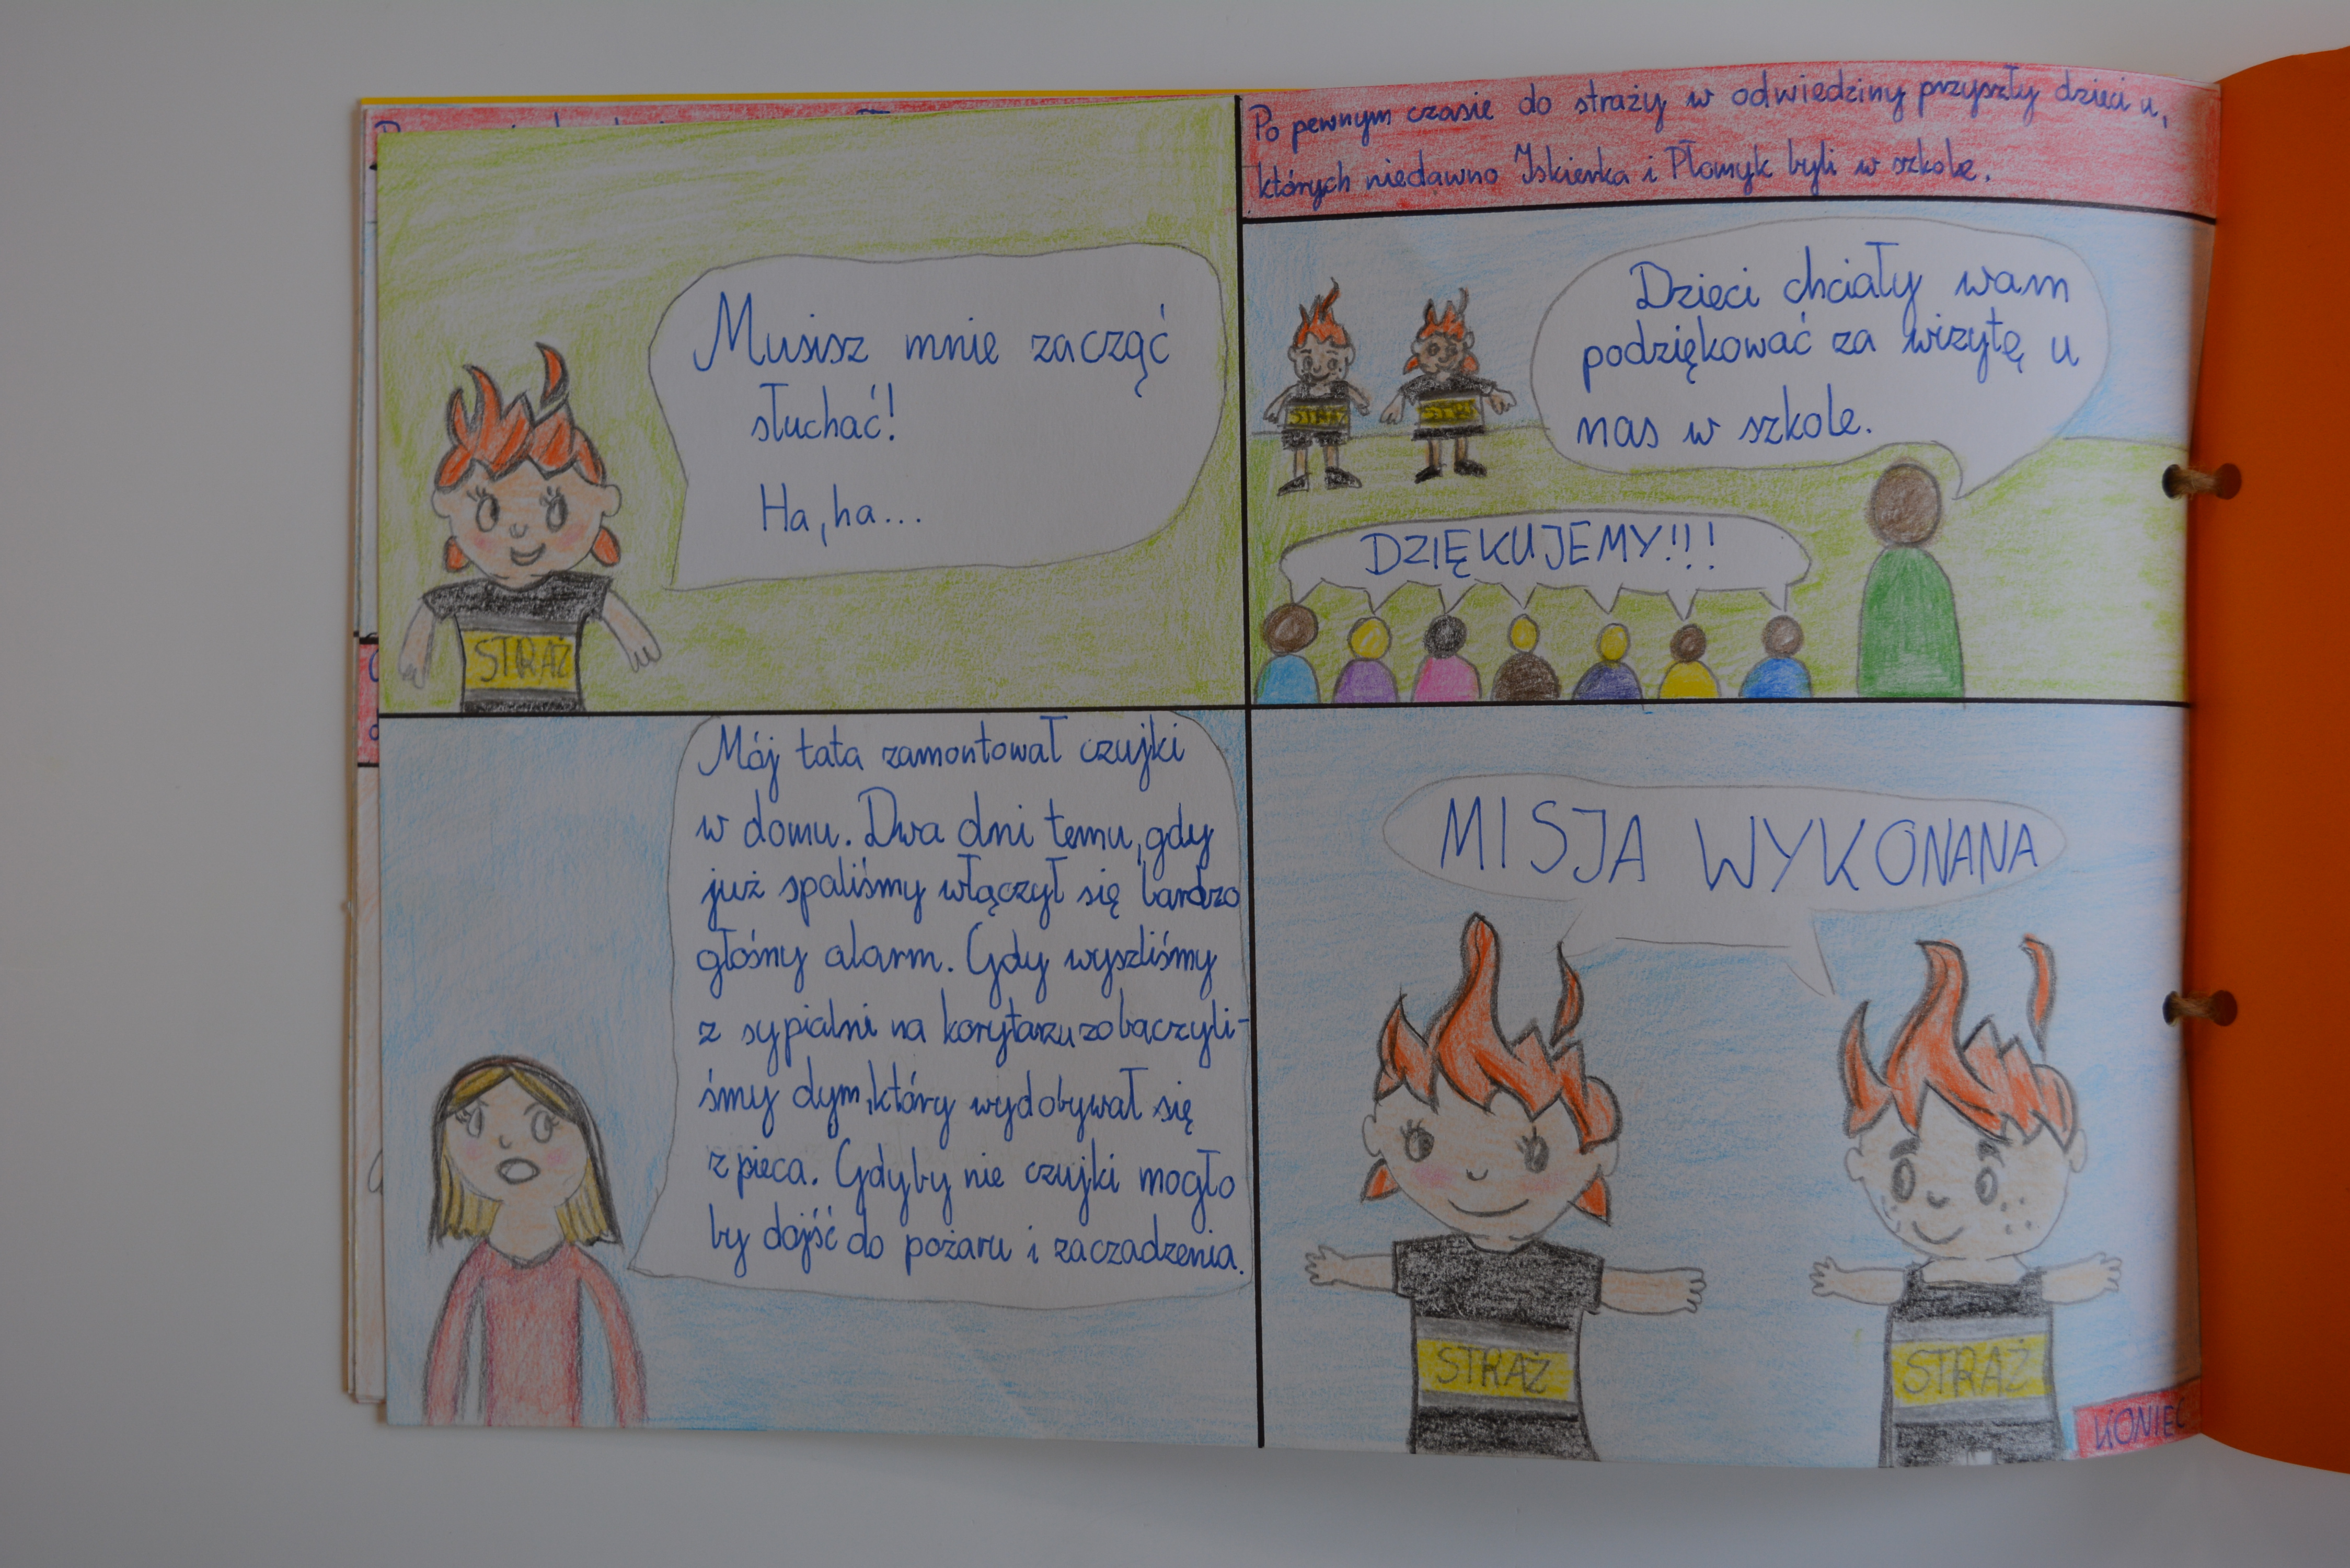 Musisz mnie zacząć
słuchać!
Ha, ha...
STRAŻ
Po pewnym czasie do straży w odwiedziny przyszły dzieci u,
których niedawno Iskierka i Płomyk byli w szkole.
Dzieci chciały wam
podziękować za wizytę u
nas w szkole.
STRAŻ
STRAŻ
DZIĘKUJEMY!!!
Mój tata zamontował czujki
w domu. Dwa dni temu, gdy
już spaliśmy włączył się bardzo
głośny alarm. Gdy wyszliśmy
z sypialni na korytarzu zobaczyli-
śmy dym, który wydobywał się
z pieca. Gdyby nie czujki mogło
by dojść do pożaru i zaczadzenia.
MISJA WYKONANA
STRAŻ
STRAŻ
KONIEC